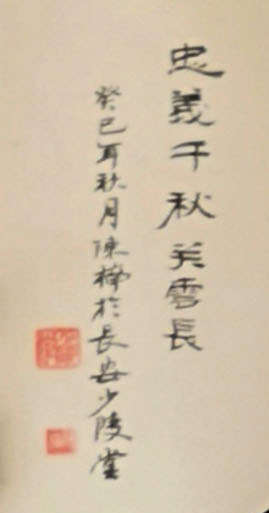 忠義千秋关雲長
癸巳年秋月陳楠於長安少陵堂